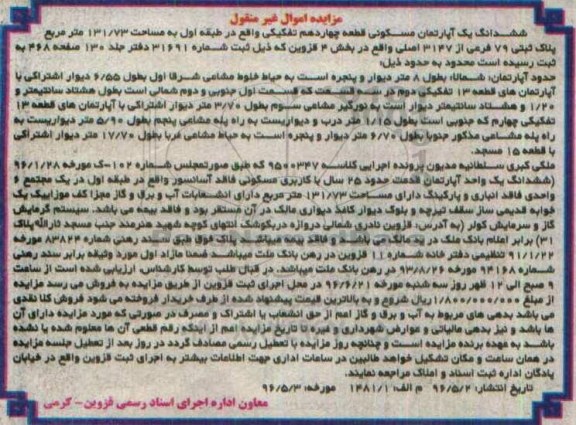 مزایده اموال غیر منقول
ششدانگ یک آپارتمان مسکونی قطعه چهاردهم تفکیکی واقع در طبقه اول به مساحت ۱۳۱/۷۳ متر مربع
پلاک ثبتی ۷۹ فرعی از ۳۱۴۷ اصلی واقع در بخش ۴ قزوین که ذیل ثبت شماره ۳۱۶۹۱ دفتر جلد ۱۳۰ صفحه ۴۶۸ به
ثبت رسیده است محدود به حدود ذیل:
حدود آپارتمان: شمالا: بطول ۸ متر دیوار و پنجره است به حیاط خلوط مشاعی شرقا اول بطول ۶/۵۵ دیوار اشتراکی با
آپارتمان های قطعه ۱۳ تفکیکی دوم در سه قسمت که قسمت اول جنوبی و دوم شمالی است بطول هشتاد سانتیمتر و
۱/۲۰ و هشتاد سانتیمتر دیوار است به نورگیر مشاعی سوم بطول ۳/۷۰ متر دیوار اشتراکی با آپارتمان های قطعه ۱۳
تفکیکی چهارم که جنوبی است بطول ۱/۱۵ متر درب و دیواریست به راه پله مشاعی پنجم بطول ۵/۹۰ متر دیواریست به
راه پله مشاعی مذکور جنوبا بطول ۶/۷۰ متر دیوار و پنجره است به حیاط مشاعی غربا بطول ۱۷/۷۰ متر دیوار اشتراکی
با قطعه ۱۵ مسجد.
ملکی کبری سلطانیه مدیون پرونده اجرایی کلاسه ۹۵۰۰۳۴۷ که طبق صورتمجلس شماره ۱۰۲-ک مورخه ۹۶/۱/۲۸
(ششدانگ یک واحد آپارتمان قدمت حدود ۲۵ سال با کاربری مسکونی فاقد آسانسور واقع در طبقه اول در یک مجتمع ۶
واحدی فاقد انباری و پارکینگ دارای مساحت ۱۳۱/۷۳ متر مربع دارای انشعابات آب و برق و گاز مجزا کف موزاییک یک
خوابه قدیمی ساز سقف تیرچه و بلوک دیوار کاغذ دیواری مالک در آن مستقر بود و فاقد بیمه می باشد. سیستم گرمایش
گاز و سرمایش کولر (به آدرس: قزوین نادری شمالی دروازه دربکوشک انتهای کوچه شهید هنرمند جنب مسجد ثارالله پلاک
۳۱) برابر اعلام بانک ملک در ید مالک می باشد و فاقد بیمه میباشد پلاک فوق طبق سند رهنی شماره ۸۳۸۲۴ مورخه
۹۱/۱/۲۲ تنظیمی دفتر خانه شماره قزوین در رهن بانک ملت میباشد ضمنا مازاد اول مورد وثیقه برابر سند رهنی
شماره ۹۴۱۶۸ مورخه ۹۳/۸/۲۶ در رهن بانک ملت میباشد. در قبال طلب توسط کارشناس، ارزیابی شده است از ساعت
۹ صبح الی ۱۲ ظهر روز سه شنبه مورخه ۹۶/۶/۲۱ در محل اجرای ثبت قزوین از طریق مزایده به فروش می رسد مزایده
از مبلغ ۱/۸۰۰/۰۰۰/۰۰۰ ریال شروع و به بالاترین قیمت پیشنهاد شده از طرف خریدار فروخته می شود فروش کلا نقدی
می باشد بدهی های مربوط به آب و برق و گاز اعم از حق انشعاب یا اشتراک و مصرف در صورتی که مورد مزایده دارای آن
ها باشد و نیز بدهی مالیاتی و عوارض شهرداری و غیره تا تاریخ مزایده اعم از اینکه رقم قطعی آن ها معلوم شده یا نشده
باشد به عهده برنده مزایده است و چنانچه روز مزایده با تعطیل رسمی مصادف گردد در روز بعد از تعطیل جلسه مزایده
در همان ساعت و مکان تشکیل خواهد طالبین در ساعات اداری جهت اطلاعات بیشتر به اجرای ثبت قزوین واقع در خیابان
پادگان اداره ثبت اسناد و املاک مراجعه نمایند.
تاریخ انتشار: ۹۶/۵/۲ م الف: ۱۴۸۱/۱ مورخه: ۹۶/۵/۳
معاون اداره اجرای اسناد رسمی قزوین- کرمی